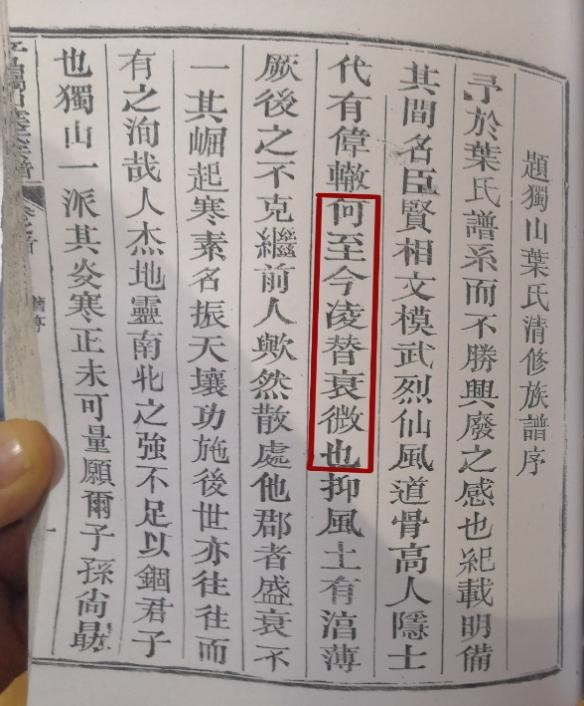 題獨山葉氏清修族譜序
予於葉氏譜系而不勝興廢之感也紀載明備
其間名臣賢相文模武烈仙風道骨高人隱士
代有偉轍何至今凌替衰微也抑風土有湻薄
厥後之不克繼前人歟然散處他郡者盛衰不
一其崛起寒素名振天壤功施後世亦往往而
有之洵哉人杰地靈南北之強不足以錮君子
也獨山一派其炎寒正未可量願爾子孫尚勗